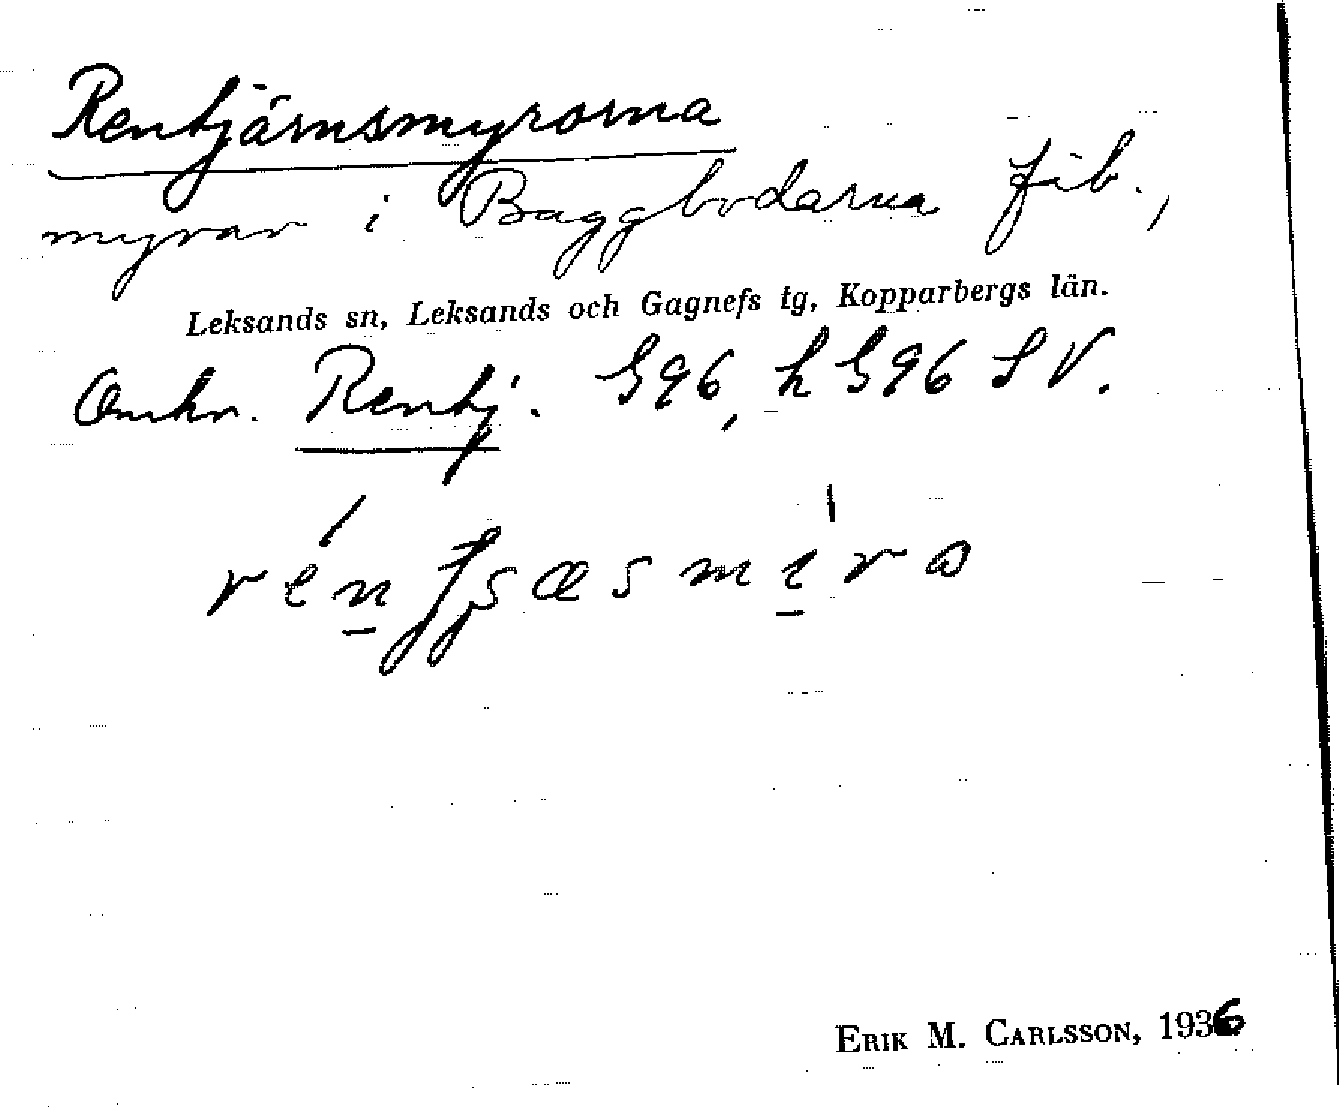 Rentjärnsmyrorna
myrar i Baggbodarna fäb.,
Leksands sn, Leksands och Gagnefs tg, Kopparbergs län.
Omkr. Rentj. G96, h G96 SV.
ERIK M. CARLSSON, 1936